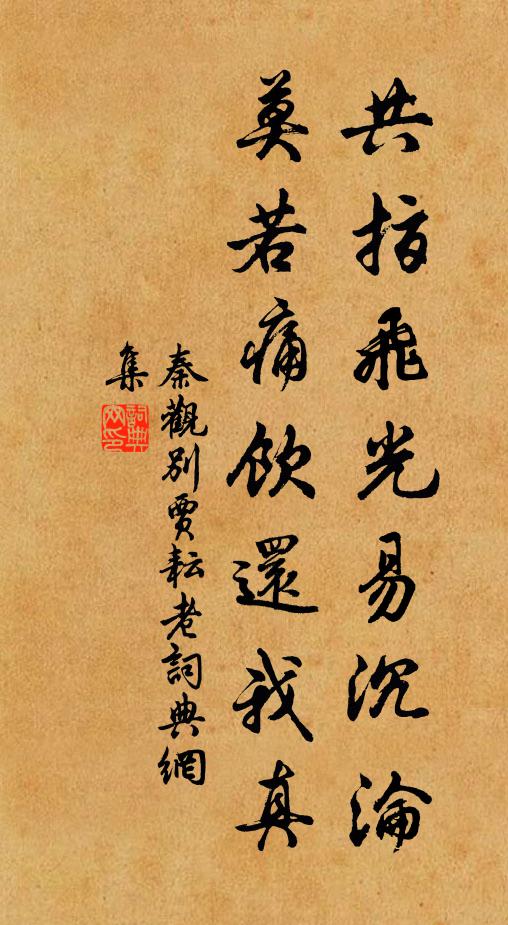 共指飛光易沉淪
莫若痛飲還我真
秦觀別賈耘老詞典網
集
詞典網印